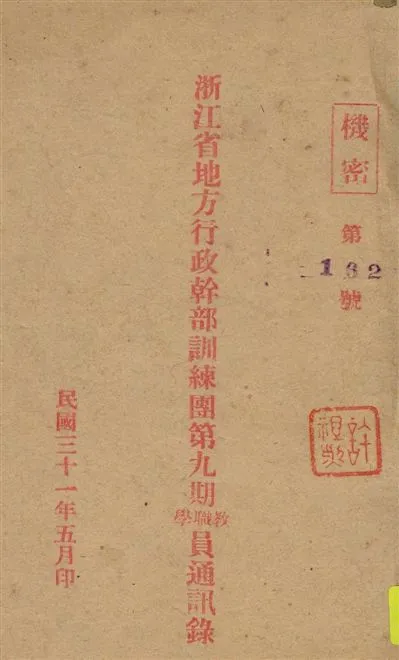 機密
第
132
號
浙江省地方行政幹部訓練團第九期教職學員通訊錄
民國三十一年五月印